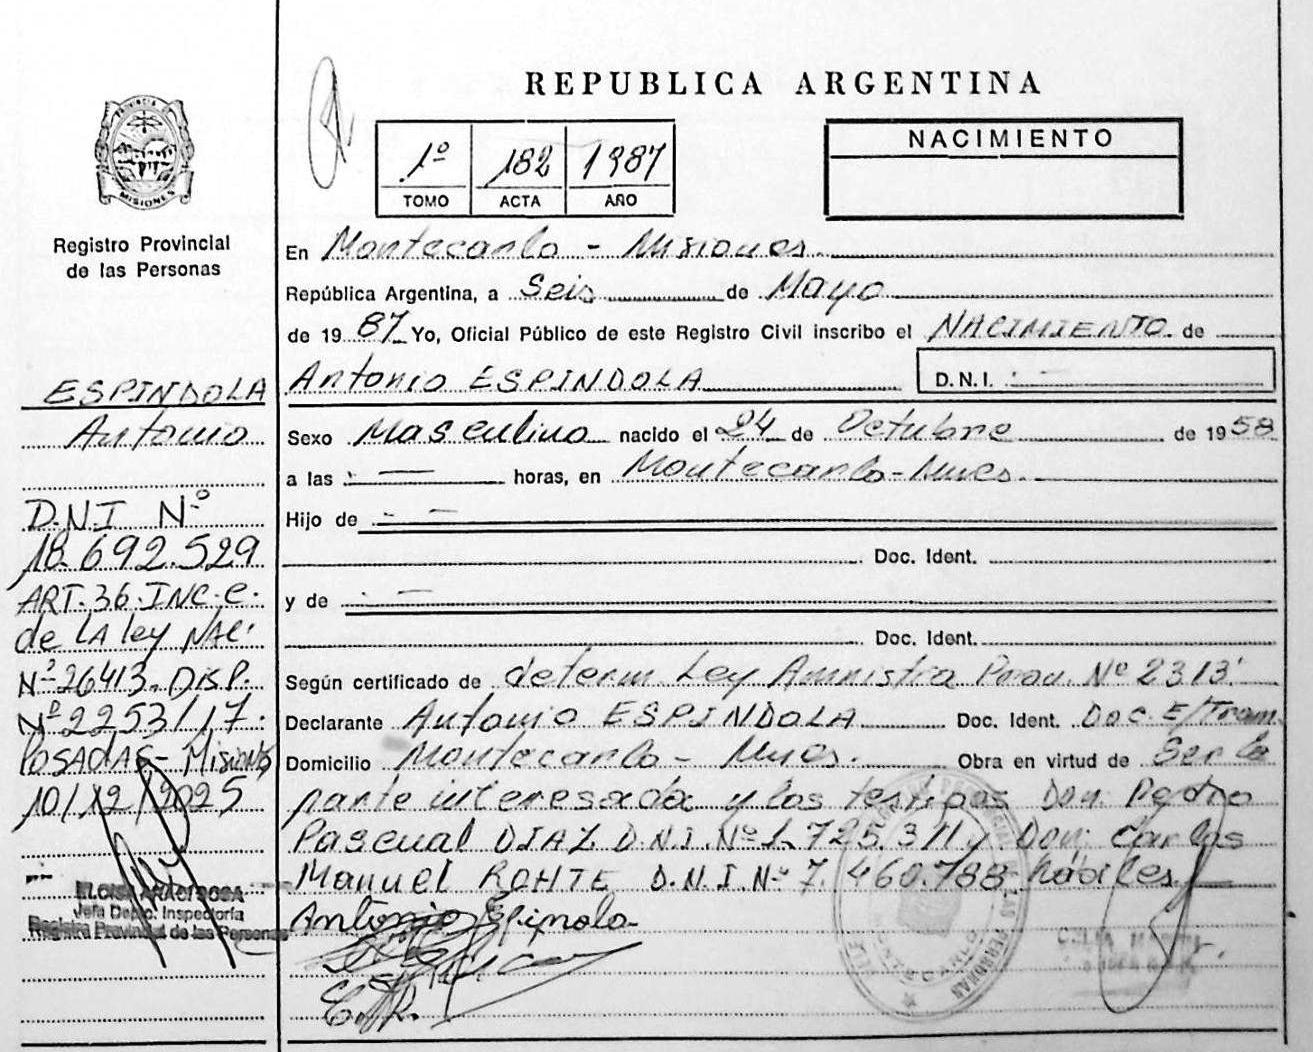 REPUBLICA ARGENTINA
PROVINCIA DE
MISIONES
Registro Provincial
de las Personas
1º 182 1987
TOMO ACTA AÑO
NACIMIENTO
En Montecarlo - Misiones.
República Argentina, a Seis de Mayo
de 19 87 Yo, Oficial Público de este Registro Civil inscribo el NACIMIENTO de
Antonio ESPINDOLA D.N.I. : —
Sexo Masculino nacido el 24 de Octubre de 19 58
a las : — horas, en Montecarlo - Mnes.
Hijo de : —
Doc. Ident.
y de : —
Doc. Ident.
Según certificado de determ Ley Amnistía Prov. Nº 2313
Declarante Antonio ESPINDOLA Doc. Ident. Doc. E/Tram.
Domicilio Montecarlo - Mnes. Obra en virtud de Ser la
parte interesada y los testigos Don Pedro
Pascual DIAZ D.N.I. Nº 1.725.311 y Don Carlos
Manuel ROHTE D.N.I. Nº 7.460.788 hábiles.
Antonio Espinola
ESPINDOLA
Antonio
D.N.I Nº
18.692.529
ART. 36. INC. c.
de LA ley NAC.
Nº 26413. DISP.
Nº 2253/17.
POSADAS - Misiones
10/12/2025
ELOISA ARACI ROSA
Jefa Depto. Inspectoría
Registro Provincial de las Personas
MONTECARLO